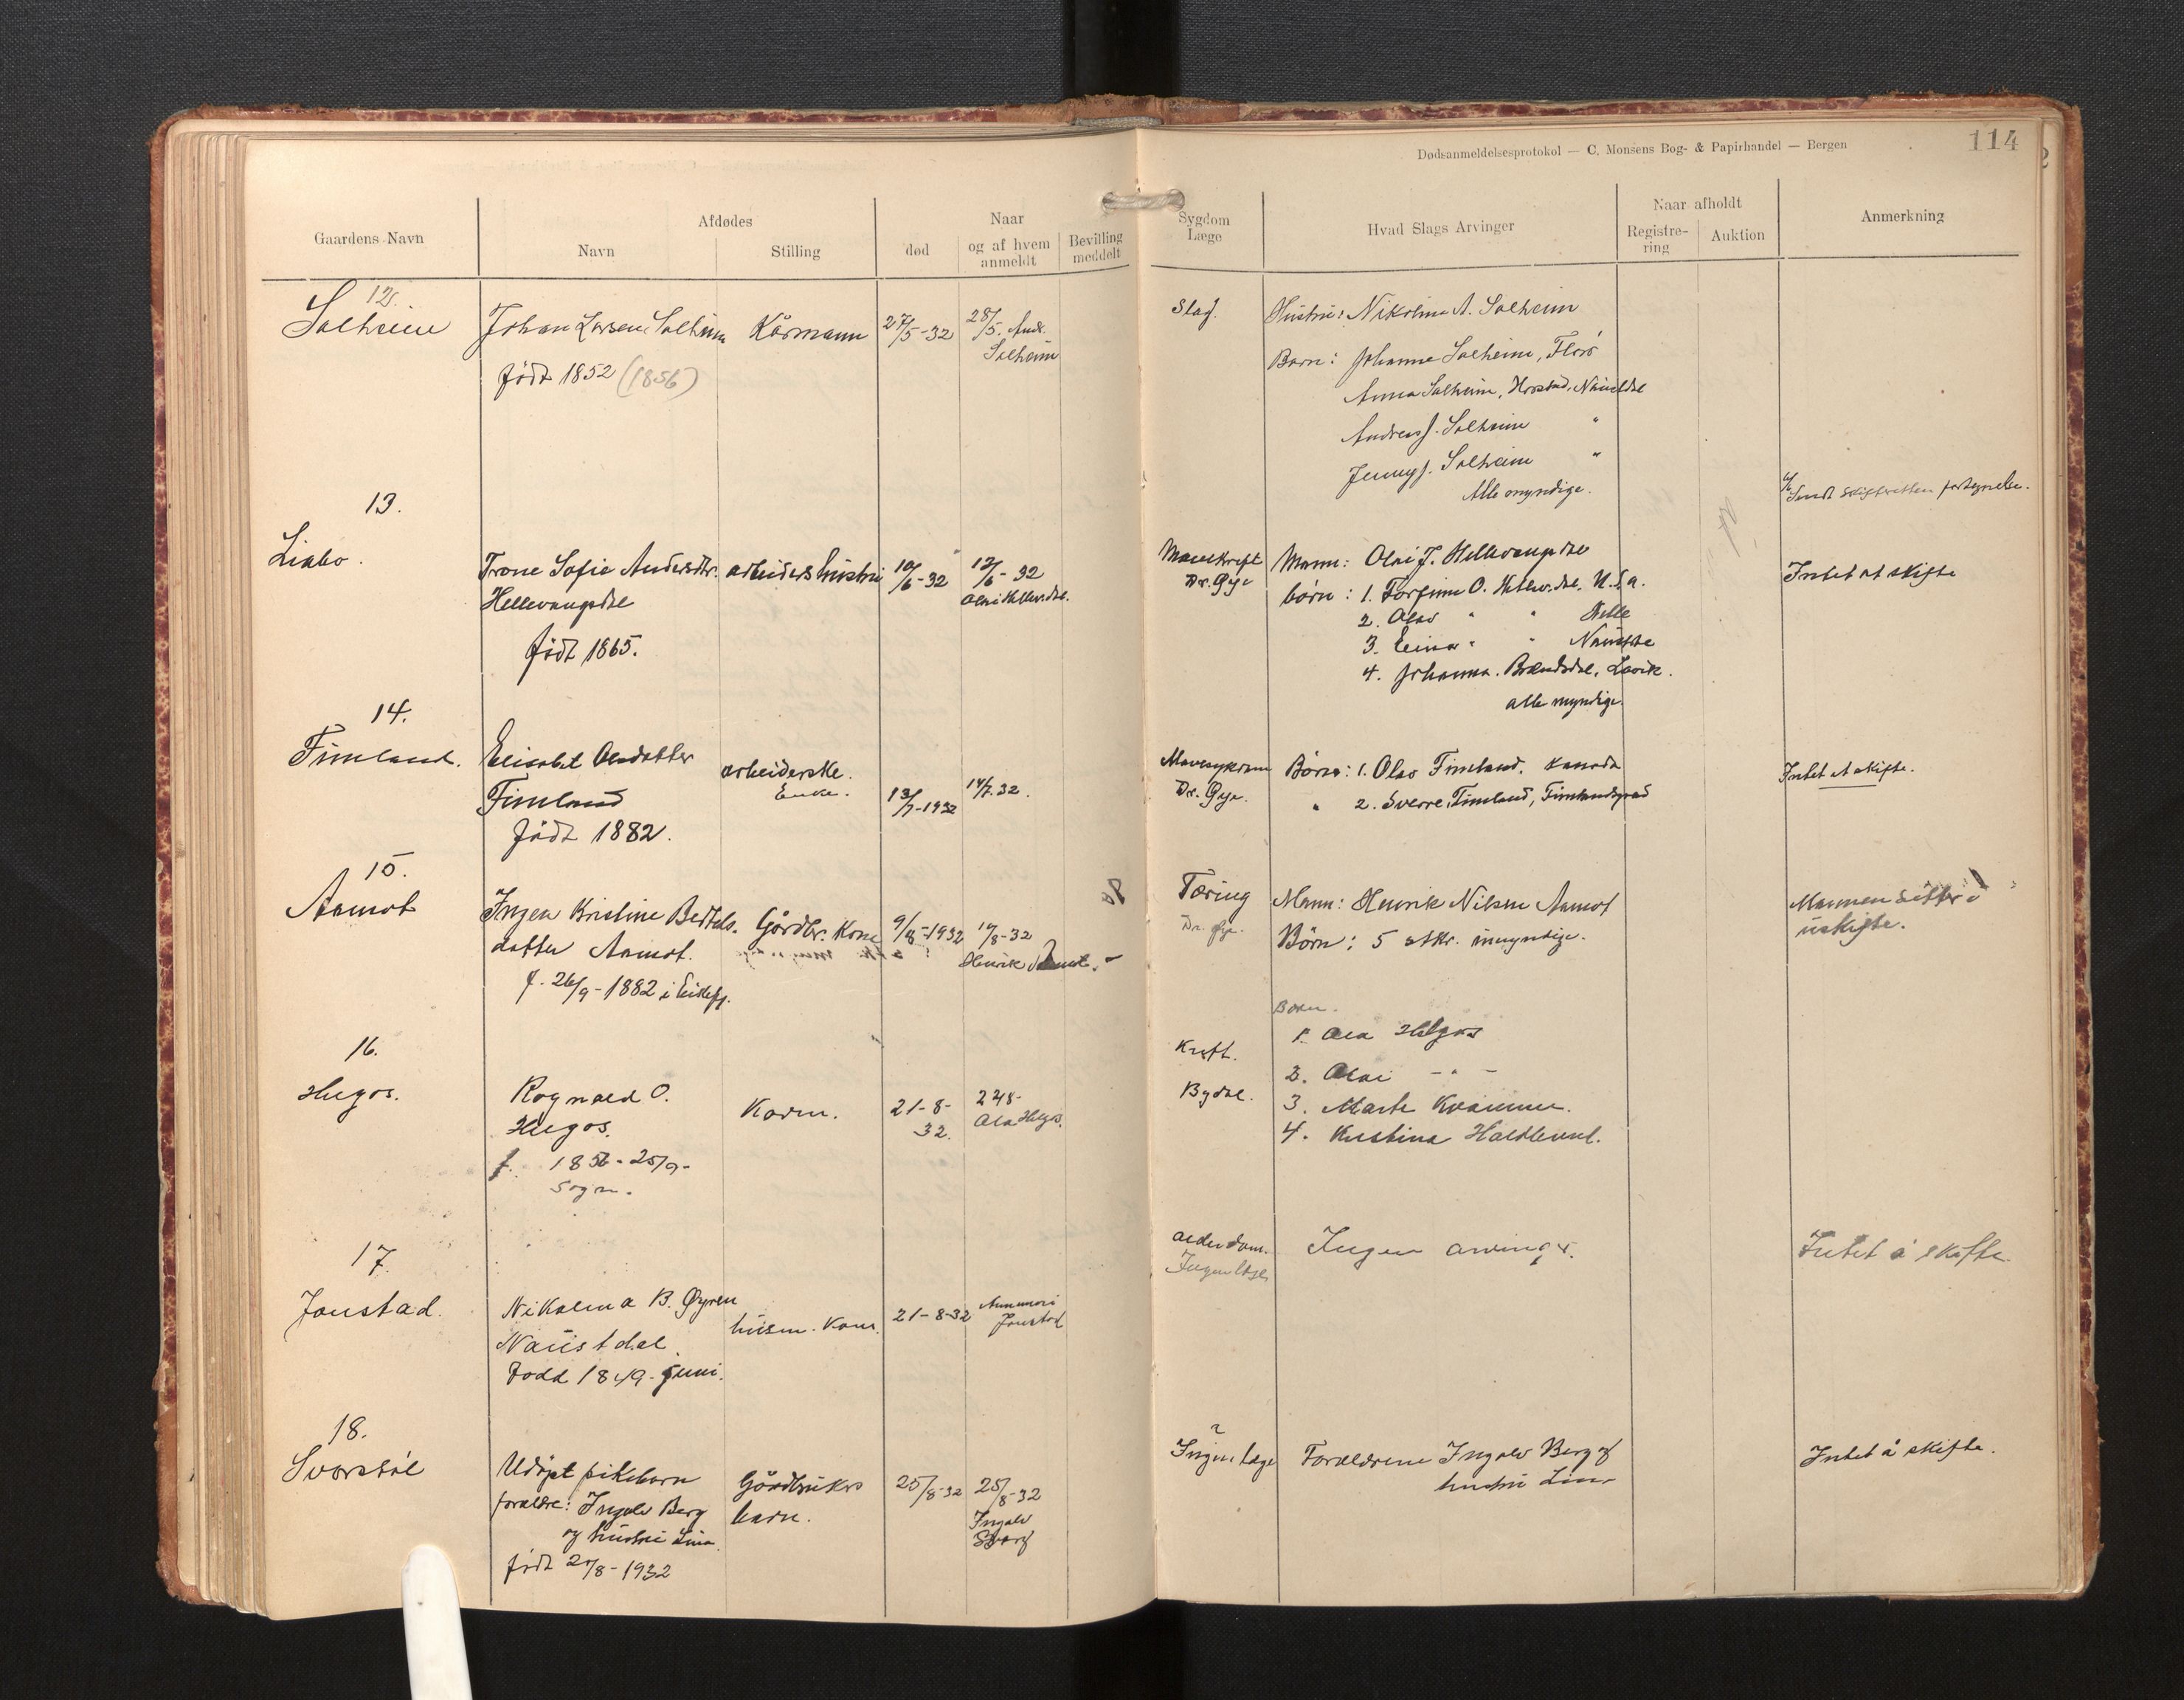 Dødsanmeldelsesprotokol — C. Monsens Bog- & Papirhandel — Bergen
114
Gaardens Navn
Afdødes
Navn
Stilling
Naar
død
og af hvem anmeldt
Bevilling meddelt
Sygdom
Læge
Hvad Slags Arvinger
Naar afholdt
Registrering
Auktion
Anmerkning
12.
Solheim
Johan Larsen Solheim
født 1852 (1856)
Kårmann
27/5-32
28/5. Andr.
Solheim
Slag.
Hustru: Nikolina A. Solheim
Barn: Johanne Solheim, Florö
Anna Solheim, Horstad, Naustdal
Andreas J. Solheim "
Jenny J. Solheim "
Alle myndige.
Sendt skifteretten fortegnelse.
13.
Liabø.
Trone Sofie Andersdtr.
Hellevangdal
født 1865.
arbeiders hustru
10/6-32
12/6-32
Olai Hellev.dal.
Mavekreft
Dr. Gye
Mann: Olai J. Hellevangdal
börn: 1. Torfinn O. Hellev.dal. U.S.a.
2. Olav " " Kelle
3. Einar " " Naustdal
4. Johanna Brændsdal, Lavik.
alle myndige.
Intet at skifte
14.
Fimland.
Elisabet Olsdatter
Fimland
født 1882.
arbeiderske.
Enke.
13/7-1932
14/7.32.
Mavesykdom
Dr. Gye.
Börn: 1. Olav Fimland. Kanada
" 2. Sverre Fimland, Fimlandsgrend
Intet at skifte.
15.
Aamot
Ingea Kristine Bertels-
datter Aamot.
f. 26/9-1882 i Eikefj.
Gårdbr. Kone
9/8-1932
14/8-32
Henrik Aamot.
Tæring
Dr. Gye.
Mann: Henrik Nilsen Aamot
Börn: 5 stkr. umyndige.
Mannen sitter i
uskifte.
16.
Helgos.
Rognald O.
Helgos.
f. 1856-25/9-
Sogn.
Karm.
21-8-
32.
Ola Helgos.
Kreft.
Bydal.
Born.
1. Ola Helgos
2. Olai - " -
3. Marta Kvamme.
4. Kristina
17.
Jonstad.
Nikolina B. Øyren
Naustdal.
Fødd 1849- juni.
husm. Kone.
21-8-32
Jonstad
Alderdom.
Ingen læge
Ingen arvinger.
Intet å skifte
18.
Svorstöl
Udöpt pikebarn
forældre: Ingolv Berg
og hustru Lina.
født 25/8-1932
Gårdbrukers
barn.
25/8-32
25/8-32
Ingolv
?
Ingen læge
Forældrene Ingolv Berg og
hustru Lina
Intet å skifte.